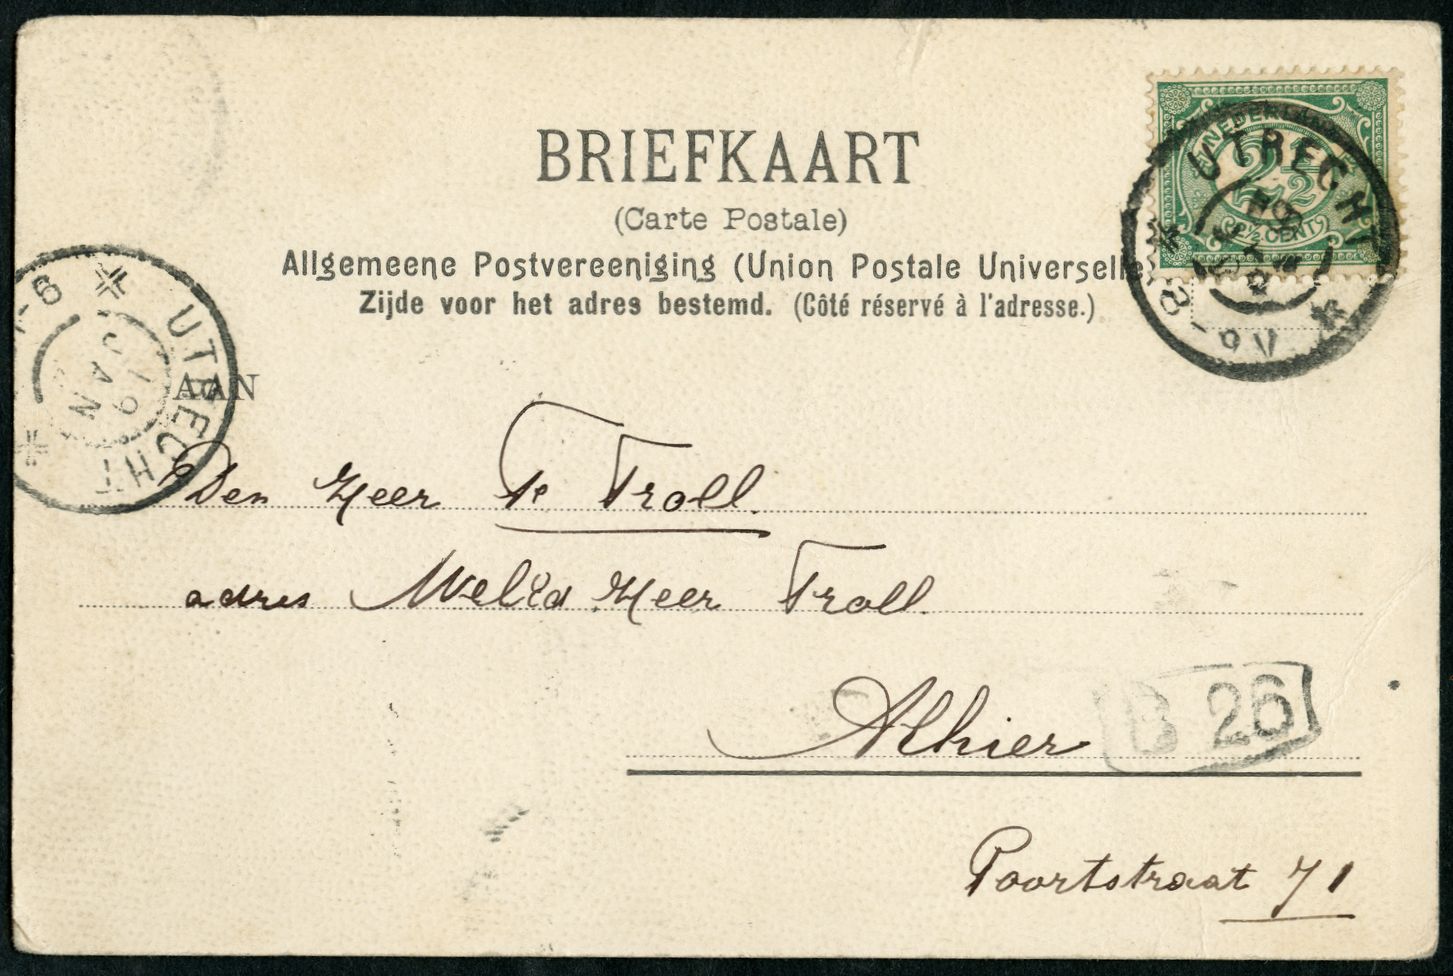 BRIEFKAART
(Carte Postale)
Allgemeene Postvereeniging (Union Postale Universelle
Zijde voor het adres bestemd. (Côté réservé à l'adresse.)
2½
UTRECHT
UTRECHT
19 JAN
AAN
Den Heer Te Troll.
adres Heer Troll.
Alhier
B 26
Poortstraat 71